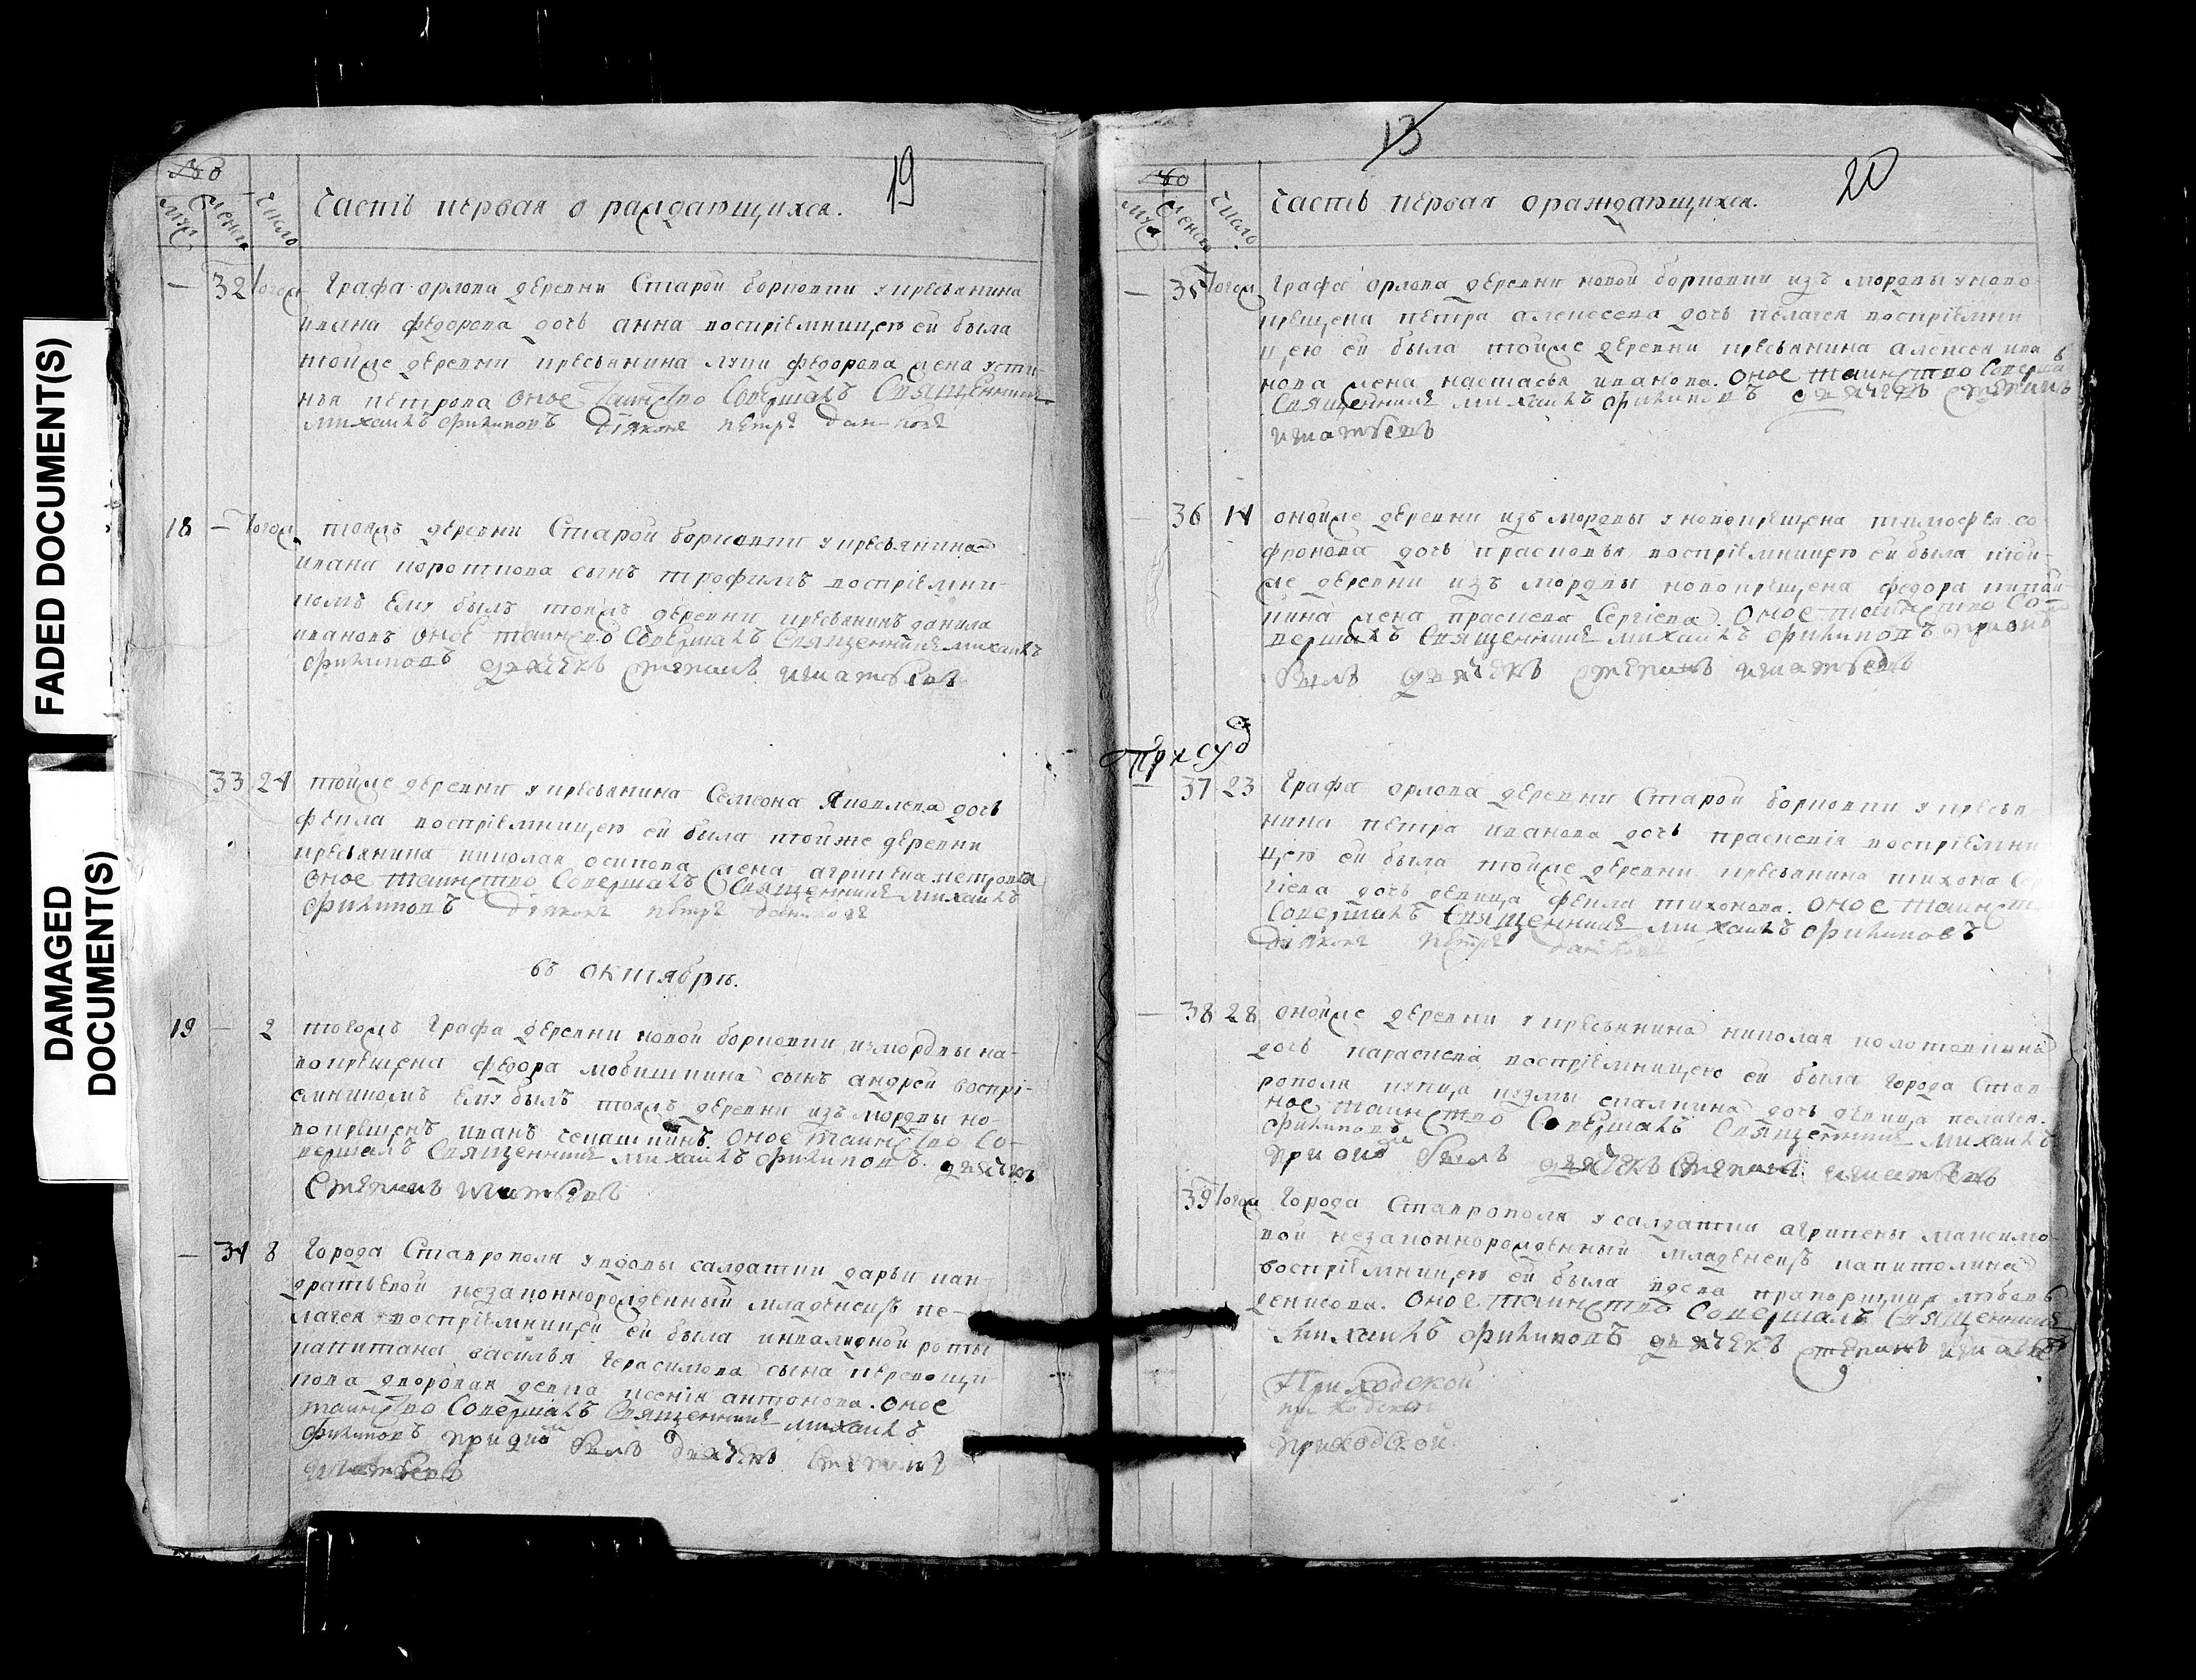 FADED DOCUMENT(S)
DAMAGED
DOCUMENT(S)
19
муж женск число
Часть первая о раждающихся.
32 тогож Графа орлова деревни Старой борковки у кресьянина
ивана федорова дочь анна восприемницею ей была
тойже деревни кресьянина луки федорова жена усти
нья петрова Оное Таинство Совершалъ Священникъ
михаилъ филиповъ Діяконъ петръ
18 — тогож тояжъ деревни Старой борковки у кресьянина
ивана короткова сынъ трофимъ восприемни-
комъ Ему былъ тояжъ деревни кресьянинъ данила
ивановъ Оное таинство Совершалъ Священникъ михаилъ
филиповъ дьячекъ Степанъ игнатьевъ
33 24 тойже деревни у кресьянина Семеона Яковлева дочь
фекла восприемницею ей была тойже деревни
кресьянина николая осипова жена агрипена петрова
Оное таинство Совершалъ Священникъ михаилъ
филиповъ Діяконъ петръ
Въ Октябрѣ.
19 — 2 тогожъ Графа деревни новой борковки измордвы но-
вокрещена федора сынъ андрей воспрі-
емникомъ Ему былъ тояжъ деревни изъ мордвы но-
вокрещенъ иванъ Оное таинство Со-
вершалъ Священникъ михаилъ филиповъ. дьячекъ
Степанъ игнатьевъ
— 34 8 Города Ставрополя у вдовы салдатки дарьи кан-
дратьевой незаконнорожденный младенецъ пе-
лагея восприемницей ей была инвалидной роты
капитана василья Герасимова сына перевощи-
кова дворовая девка ксенія антонова. Оное
таинство Совершалъ Священникъ михаилъ
филиповъ дьячекъ Степанъ
игнатьевъ
13
20
муж женск число
Часть первая о раждающихся.
— 35 тогож Графа орлова деревни новой борковки изъ мордвы у ново
крещена петра алексеева дочь пелагея восприемни
цею ей была тойже деревни кресьянина алексея ива
нова жена настасья иванова. Оное таинство Соверша
Священникъ михаилъ филиповъ дьячекъ Степанъ
игнатьевъ
— 36 14 онойже деревни изъ мордвы у новокрещена тимофея со
фронова дочь прасковья восприемницею ей была той-
же деревни изъ мордвы новокрещена федора
жена праскева Сергіева. Оное таинство Со-
вершалъ Священникъ михаилъ филиповъ
дьячекъ Степанъ игнатьевъ
37 23 Графа орлова деревни Старой борковки у кресья-
нина петра иванова дочь восприемни
цею ей была тойже деревни кресьянина тихона Сер
гіева дочь девица фекла тихонова. Оное таинст
Совершалъ Священникъ михаилъ филиповъ
Діяконъ петръ
— 38 28 онойже деревни у кресьянина николая
дочь параскева восприемницею ей была города Став-
рополя купца кузмы дочь девица пелагея.
ное таинство Совершалъ Священникъ михаилъ
филиповъ
дьячекъ Степанъ игнатьевъ
39 тогож Города Ставрополя у салдатки агрипены максимо
вой незаконнорожденный младенецъ капитолина
восприемницею ей была вдова прапорщица любовь
денисова. Оное таинство Совершалъ Священникъ
михаилъ филиповъ дьячекъ Степанъ
Приходской
приходской
приходской